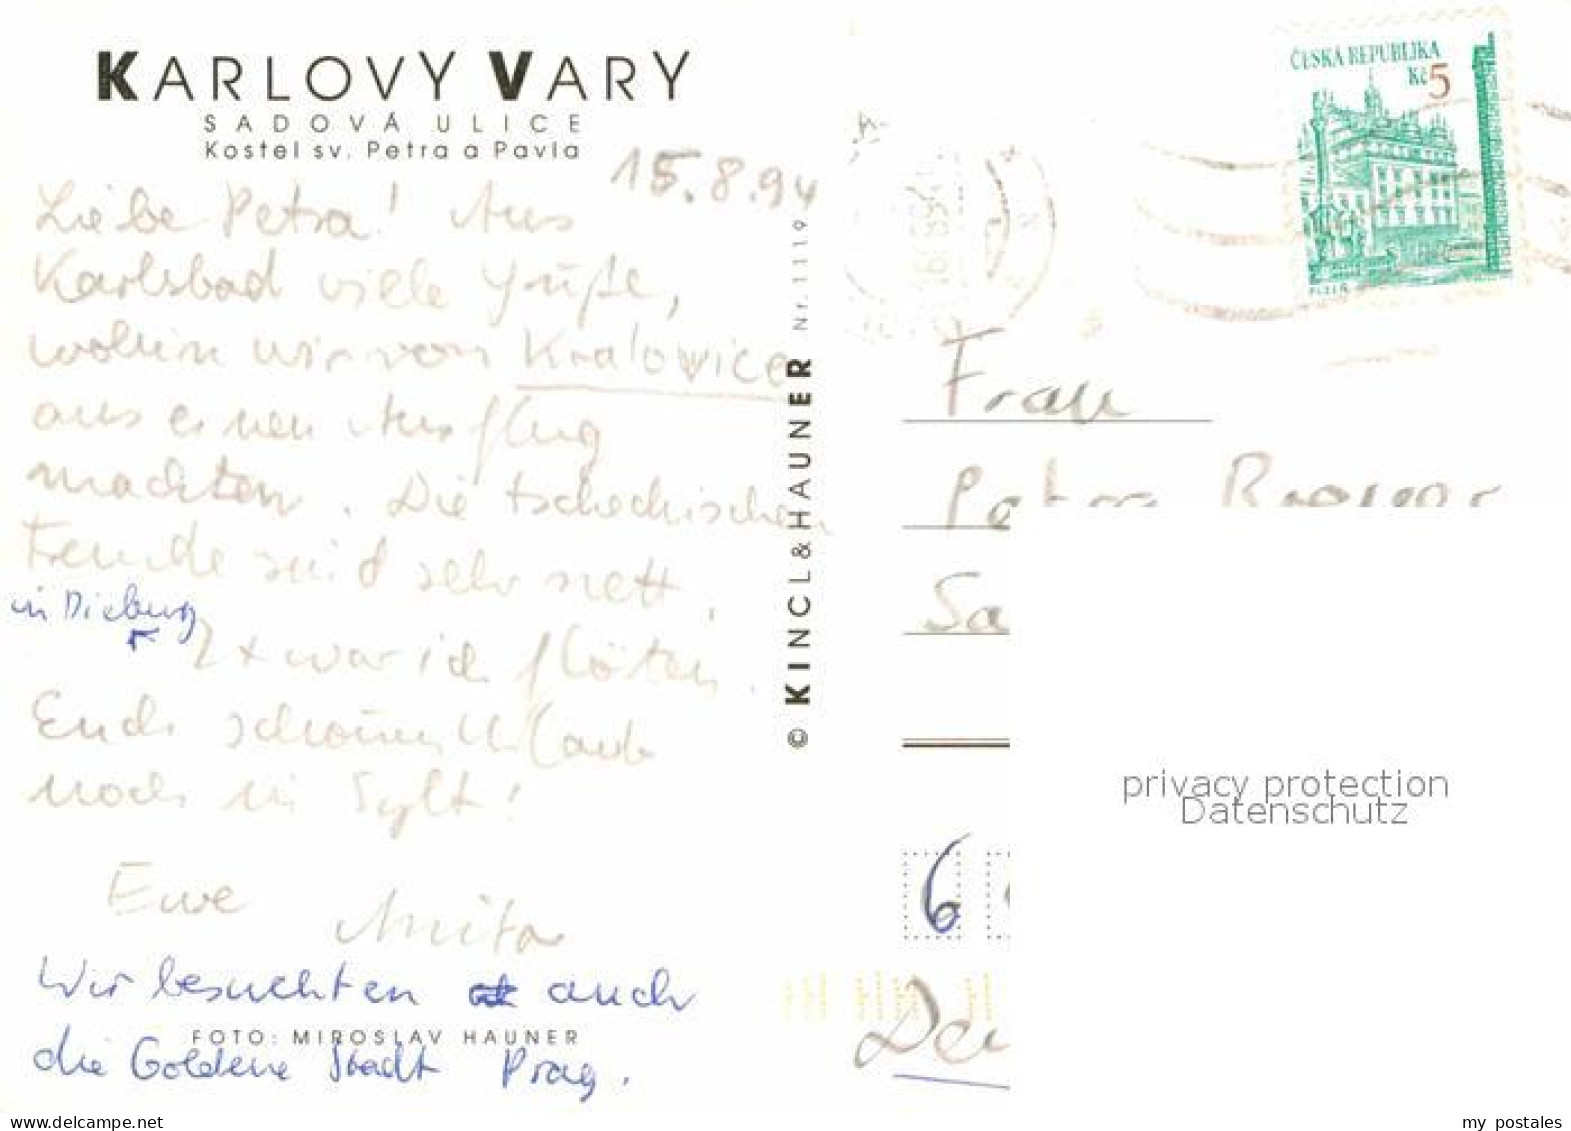 KARLOVY VARY
SADOVÁ ULICE
Kostel sv. Petra a Pavla
15.8.94
Liebe Petra! Aus
Karlsbad viele Grüße,
wohin wir von Kralowice
aus einen Ausflug
machten. Die tschechischen
Freunde sind sehr nett.
in Dieburg
2x war ich flöten.
Euch schönen Urlaub
noch in Sylt!
Ewe
Anita
Wir besuchten auch
FOTO: MIROSLAV HAUNER
die Goldene Stadt Prag.
© KINCL & HAUNER Nr. 1119
ČESKÁ REPUBLIKA
Kč 5
PLZEŇ
Frau
Petra
Sa
6
De
privacy protection
Datenschutz
delcampe.net
my_postales